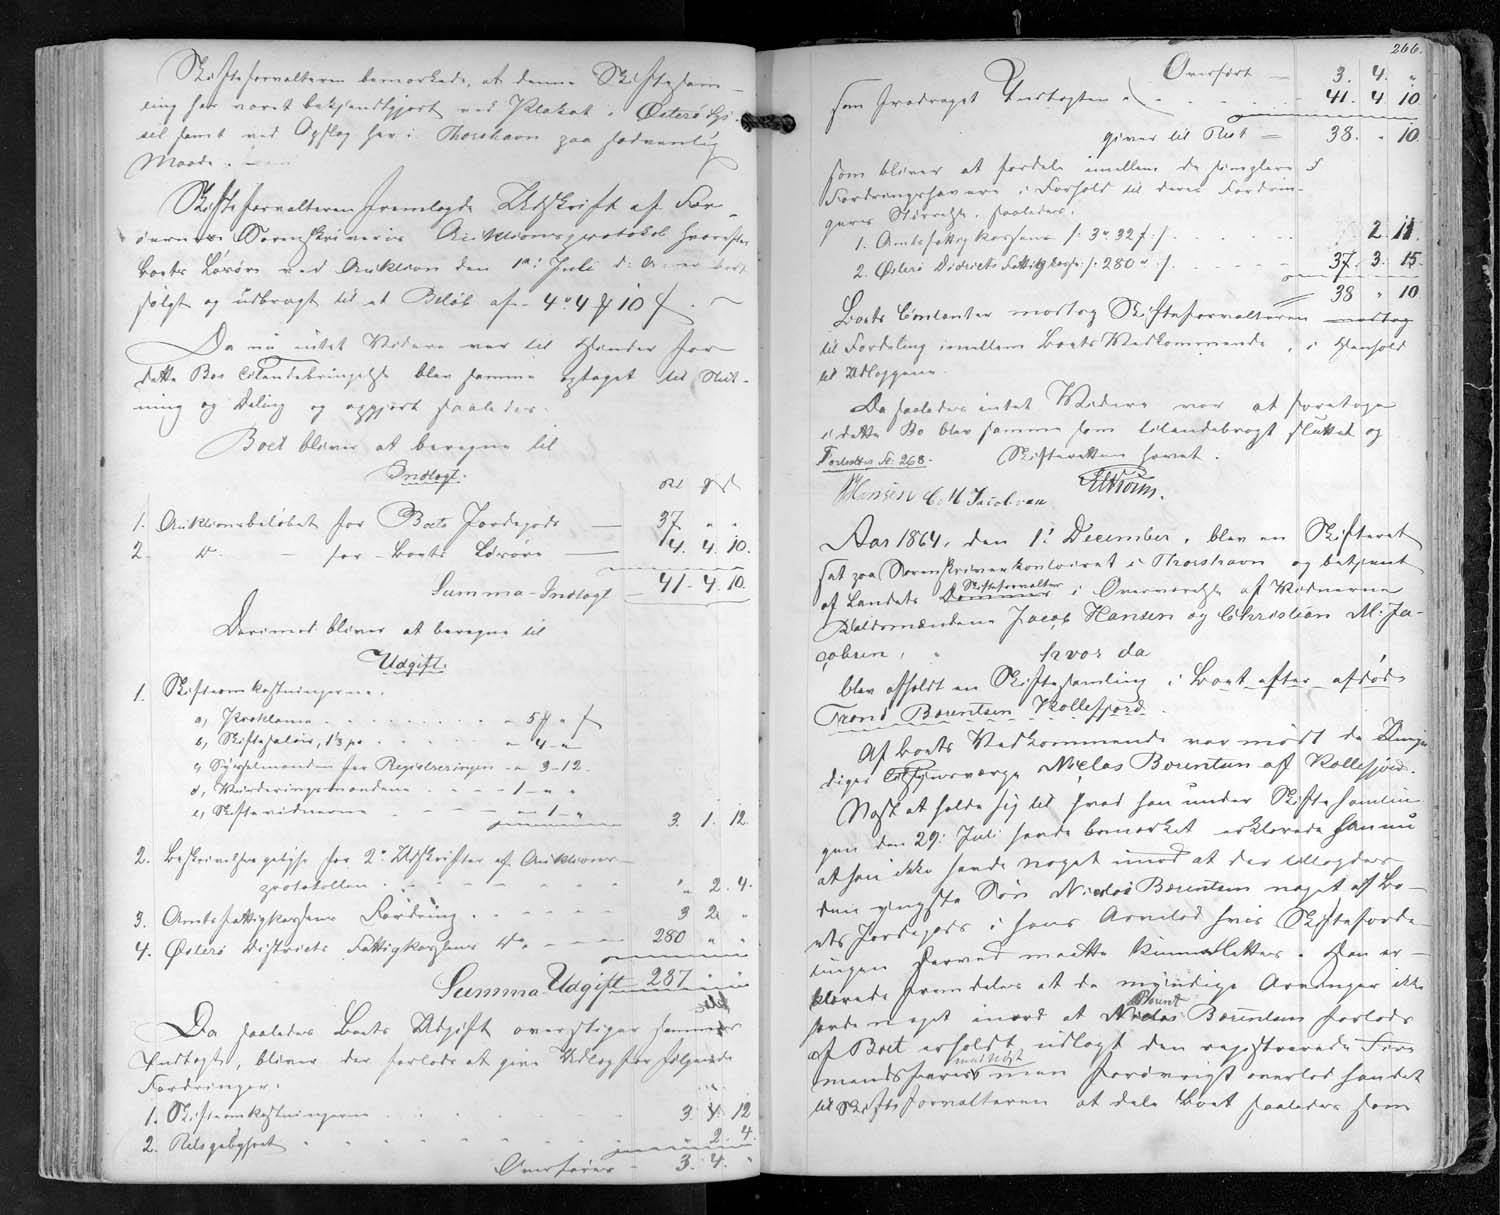 Skifteforvalteren bemærkede, at denne Skiftesam-
ling har været bekjendtgjort ved Plakat i Østerø Sys-
sel samt ved Opslag her i Thorshavn paa sædvanlig
Maade.
Skifteforvalteren fremlagde Udskrift af Fær-
øernes Sorenskriveries Auktionsprotokol hvorefter
Boets Løsøre ved Auktion den 1ste Juli d. A. er bort
solgt og udbragt til et Beløb af 4 " 4 10
Da nu intet Videre var til Hinder for
dette Bos Tilendebringelse blev samme optaget til Slut-
ning og Deling og opgjort saaledes.
Boet bliver at beregne til
Indtægt.
1. Auktionsbeløbet for Boets Jordegods 37 " "
2. do for Boets Løsøre 4. 4. 10.
Summa Indtægt 41. 4. 10.
Derimod bliver at beregne til
Udgift.
1. Skifteomkostningerne.
a, Proklama 5
b, Skiftesalair, 1⅓ pc. " 4 "
c, Sysselmanden for Registreringen 3-12.
d, Vurderingsmændene 1 " "
e, Skiftevidnerne 1 "
3. 1. 12.
2. Beskrivelsesgebyhr for 2de Udskrifter af Auktions-
protokollen " 2. 4.
3. Amtsfattigkassens Fordring 3 2 "
4. Østerø Districts Fattigkasses do 280 " "
Summa Udgift 287 " "
Da saaledes Boets Udgift overstiger sammes
Indtægt, bliver der forlods at give Udlæg for følgende
Fordringer:
1. Skifteomkostningerne 3. 1. 12
2. Retsgebyhret " 2. 4.
Overføres 3. 4. "
266.
Overført 3. 4. "
som fradraget Indtægten 41. 4. 10
giver til Rest 38. " 10.
som bliver at fordele imellem de simplere
Fordringshavere i Forhold til deres Fordrin-
gers Størrelse, saaledes.
1. Amtsfattigkassens 2. 11.
2. Østerø Districts Fattigkasse 280 37. 3. 15.
38 " 10
Boets Contanter modtog Skifteforvalteren modtog
til Fordeling imellem Boets Vedkommende, i Henhold
til Udlæggene.
Da saaledes intet Videre var at foretage
i dette Bo blev samme som tilendebragt sluttet og
Fortsættes fol. 268. Skifteretten hævet.
JHansen C. M. Jacobsen
Aar 1864, den 1ste December, blev en Skifteret
sat paa Sorenskriverkontoiret i Thorshavn og betjent
af Landets Dommer Skifteforvalter i Overværelse af Vidnerne
Raldsmændene Jacob Hansen og Christian M. Ja-
cobsen, hvor da
blev afholdt en Skiftesamling i Boet efter afdøde
Trond Barentsen Kollefjord.
Af Boets Vedkommende var mødt de Umyn-
diges Tilsynsværge Niclas Barentsen af Kollefjord.
Næst at holde sig til hvad han under Skiftesamlin
gen den 29. Juli havde bemærket erklærede han nu
at han ikke havde noget imod at der udlagdes
den yngste Søn Niclas Barentsen noget af Bo-
ets Jordegods i hans Arvelod hvis Skiftefordel-
ingen derved maatte kunne lettes. Han er-
klærede fremdeles at de myndige Arvinger ikke
havde noget imod at Niclas Barent Barentsen forlods
af Boet erholdt udlagt den registrerede Fire
mandsfarer med Nøst men forøvrigt overlod han det
til Skifteforvalteren at dele Boet saaledes som